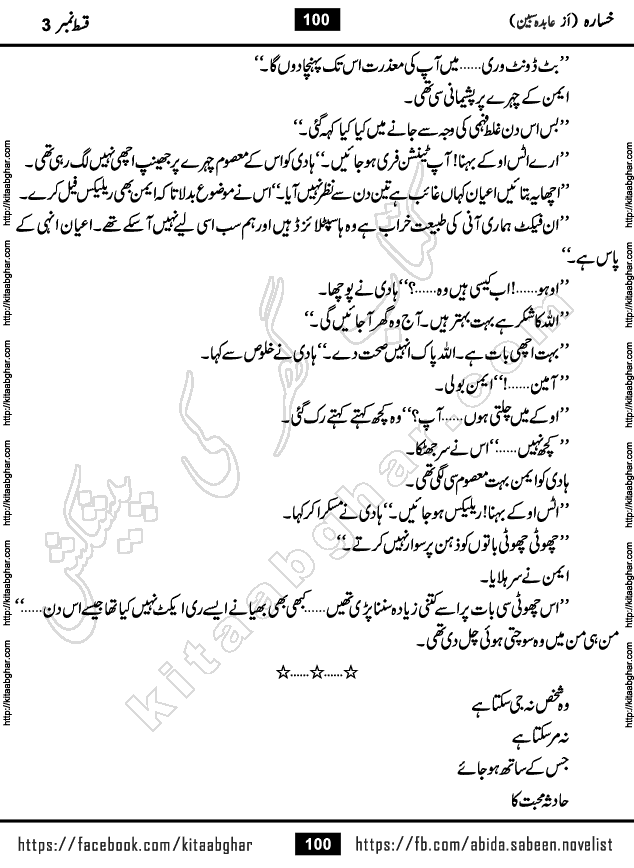 خسارہ (از عابدہ سبین)
100
قسط نمبر 3
’’بٹ ڈونٹ وری......میں آپ کی معذرت اس تک پہنچا دوں گا۔‘‘
ایمن کے چہرے پر پشیمانی سی تھی۔
’’بس اس دن غلط فہمی کی وجہ سے جانے میں کیا کیا کہہ گئی۔‘‘
’’ارے اٹس اوکے بہنا! آپ ٹینشن فری ہو جائیں۔‘‘ ہادی کو اس کے معصوم چہرے پر جھینپ اچھی نہیں لگ رہی تھی۔
’’اچھا یہ بتائیں اعیان کہاں غائب ہے تین دن سے نظر نہیں آیا۔‘‘ اس نے موضوع بدلا تاکہ ایمن بھی ریلیکس فیل کرے۔
’’ان فیکٹ ہماری آنی کی طبیعت خراب ہے وہ ہاسپٹلائزڈ ہیں اور ہم سب اسی لیے نہیں آسکے تھے۔ اعیان انہی کے
پاس ہے۔‘‘
’’اوہو......! اب کیسی ہیں وہ......؟‘‘ ہادی نے پوچھا۔
’’اللہ کا شکر ہے بہت بہتر ہیں۔ آج وہ گھر آجائیں گی۔‘‘
’’بہت اچھی بات ہے۔ اللہ پاک انہیں صحت دے۔‘‘ ہادی نے خلوص سے کہا۔
’’آمین......!‘‘ ایمن بولی۔
’’اوکے میں چلتی ہوں......آپ؟‘‘ وہ کچھ کہتے کہتے رک گئی۔
’’کچھ نہیں......‘‘ اس نے سر جھٹکا۔
ہادی کو ایمن بہت معصوم سی لگی تھی۔
’’اٹس اوکے بہنا! ریلیکس ہو جائیں۔‘‘ ہادی نے مسکرا کر کہا۔
’’چھوٹی چھوٹی باتوں کو ذہن پر سوار نہیں کرتے۔‘‘
ایمن نے سر ہلایا۔
’’اس چھوٹی سی بات پر اسے کتنی زیادہ سننا پڑی تھیں......کبھی بھی بھیا نے ایسے ری ایکٹ نہیں کیا تھا جیسے اس دن......‘‘
من ہی من میں وہ سوچتی ہوئی چل دی تھی۔
☆......☆......☆
وہ شخص نہ جی سکتا ہے
نہ مر سکتا ہے
جس کے ساتھ ہو جائے
حادثہ محبت کا
https://facebook.com/kitaabghar
100
https://fb.com/abida.sabeen.novelist
http://kitaabghar.com
http://kitaabghar.com
http://kitaabghar.com
http://kitaabghar.com
http://kitaabghar.com
http://kitaabghar.com
http://kitaabghar.com
http://kitaabghar.com
http://kitaabghar.com
http://kitaabghar.com
http://kitaabghar.com
http://kitaabghar.com
کتاب گھر کی پیشکش
kitaabghar.com